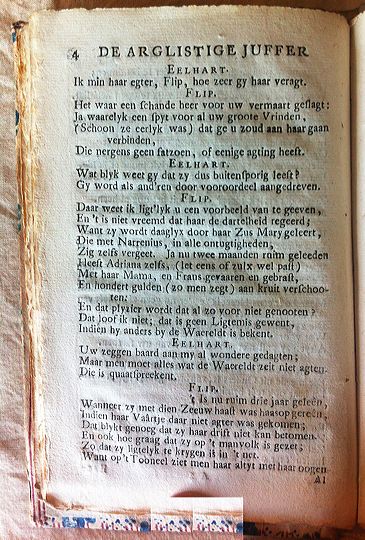 4 DE ARGLISTIGE JUFFER
EELHART.
Ik min haar egter, Flip, hoe zeer gy haar veragt.
FLIP.
Het waar een schande heer voor uw vermaart geslagt:
Ja waarelyk een spyt voor al uw groote Vrinden,
(Schoon ze eerlyk was) dat ge u zoud aan haar gaan
verbinden,
Die nergens geen fatzoen, of eenige agting heeft.
EELHART.
Wat blyk weet gy dat zy dus buitensporig leeft?
Gy word als and'ren door vooroordeel aangedreven.
FLIP.
Daar weet ik ligt'lyk u een voorbeeld van te geeven,
En 't is niet vreemd dat haar de dartelheid regeerd;
Want zy wordt daaglyx door haar Zus Mary geleert,
Die met Narrenius, in alle ontugtigheden,
Zig zelfs vergeet. Ja nu twee maanden ruim geleeden
Heeft Adriana zelfs, (let eens of zulx wel past)
Met haar Mama, en Frans gevaaren en gebrast,
En hondert gulden (zo men zegt) aan kruit verschoo-
ten:
En dat plyzier wordt dat al zo voor niet genooten?
Dat loof ik niet; dat is geen Ligtemis gewent,
Indien hy anders by de Waereldt is bekent.
EELHART.
Uw zeggen baard aan my al wondere gedagten;
Maar men moet alles wat de Waereldt zeit niet agten
Die is quaatspreekent.
FLIP.
't Is nu ruim drie jaar geleën,
Wanneer zy met dien Zeeuw haast was haasop gereën,
Indien haar Vaartje daar niet agter was gekomen;
Dat blykt genoeg dat zy haar drift niet kan betomen.
En ook hoe graag dat zy op 't manvolk is gezet;
Zo dat zy ligtelyk te krygen is in 't net.
Want op 't Tooneel ziet men haar altyt met haar oogen
Al